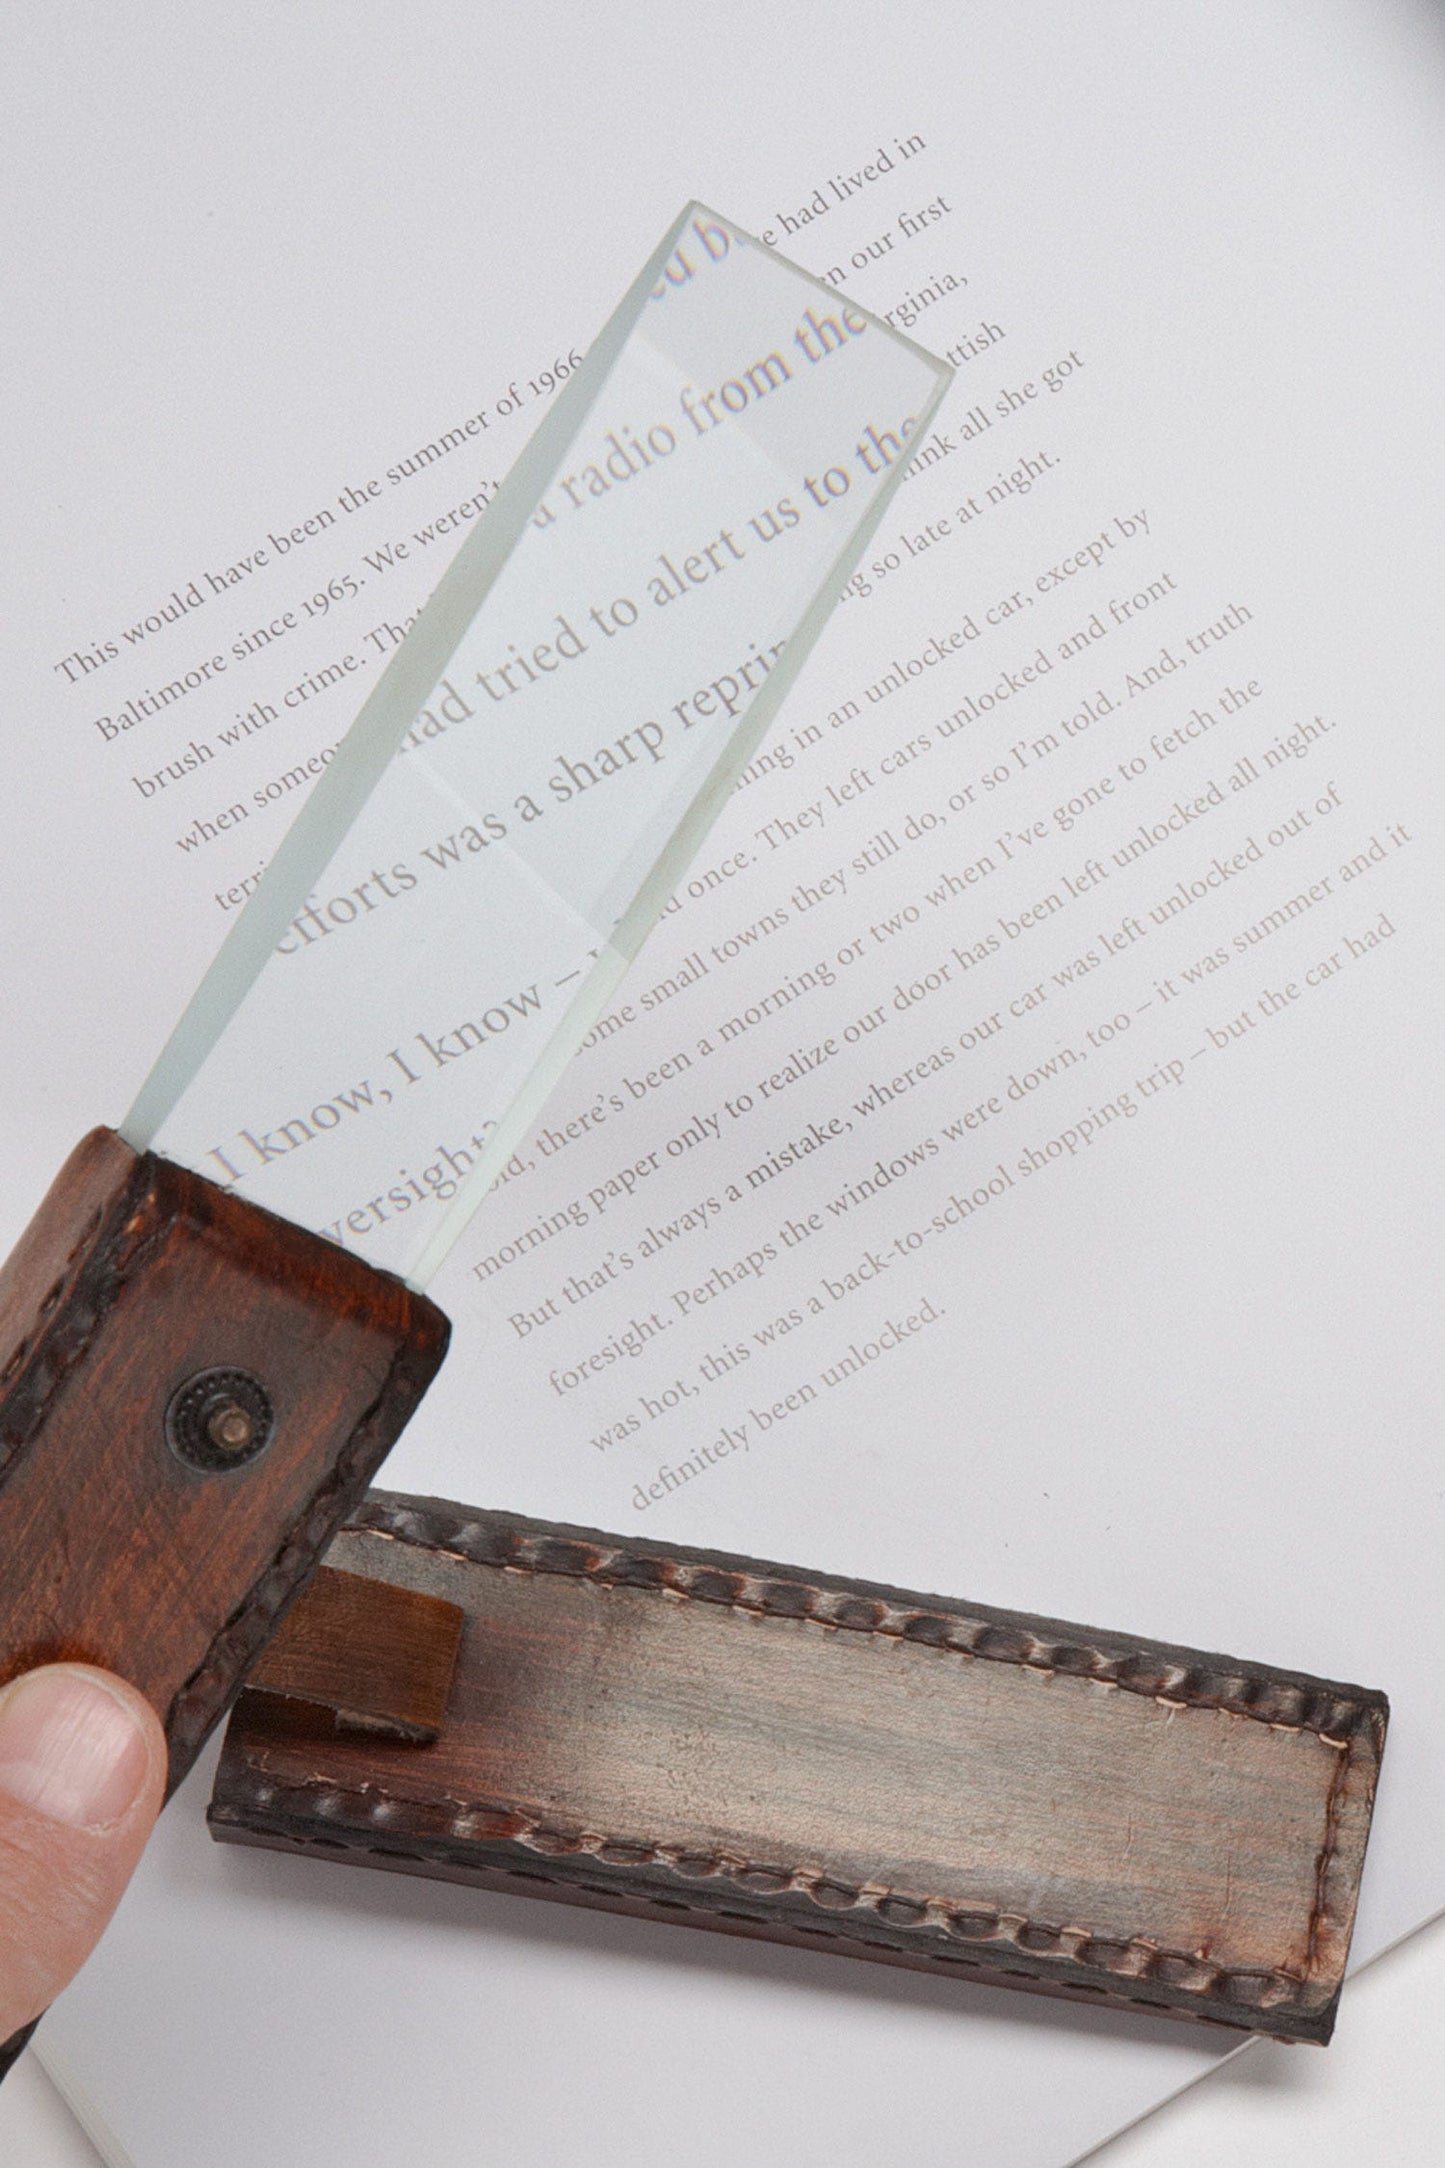 This would have been the summer of 1966 had lived in
Baltimore since 1965. We weren't our first
brush with crime. radio from the
when had tried to alert us to the
efforts was a sharp all she got
I know, I know – so late at night.
in an unlocked car, except by
once. They left cars unlocked and front
some small towns they still do, or so I'm told. And, truth
there's been a morning or two when I've gone to fetch the
morning paper only to realize our door has been left unlocked all night.
But that's always a mistake, whereas our car was left unlocked out of
foresight. Perhaps the windows were down, too – it was summer and it
was hot, this was a back-to-school shopping trip – but the car had
definitely been unlocked.